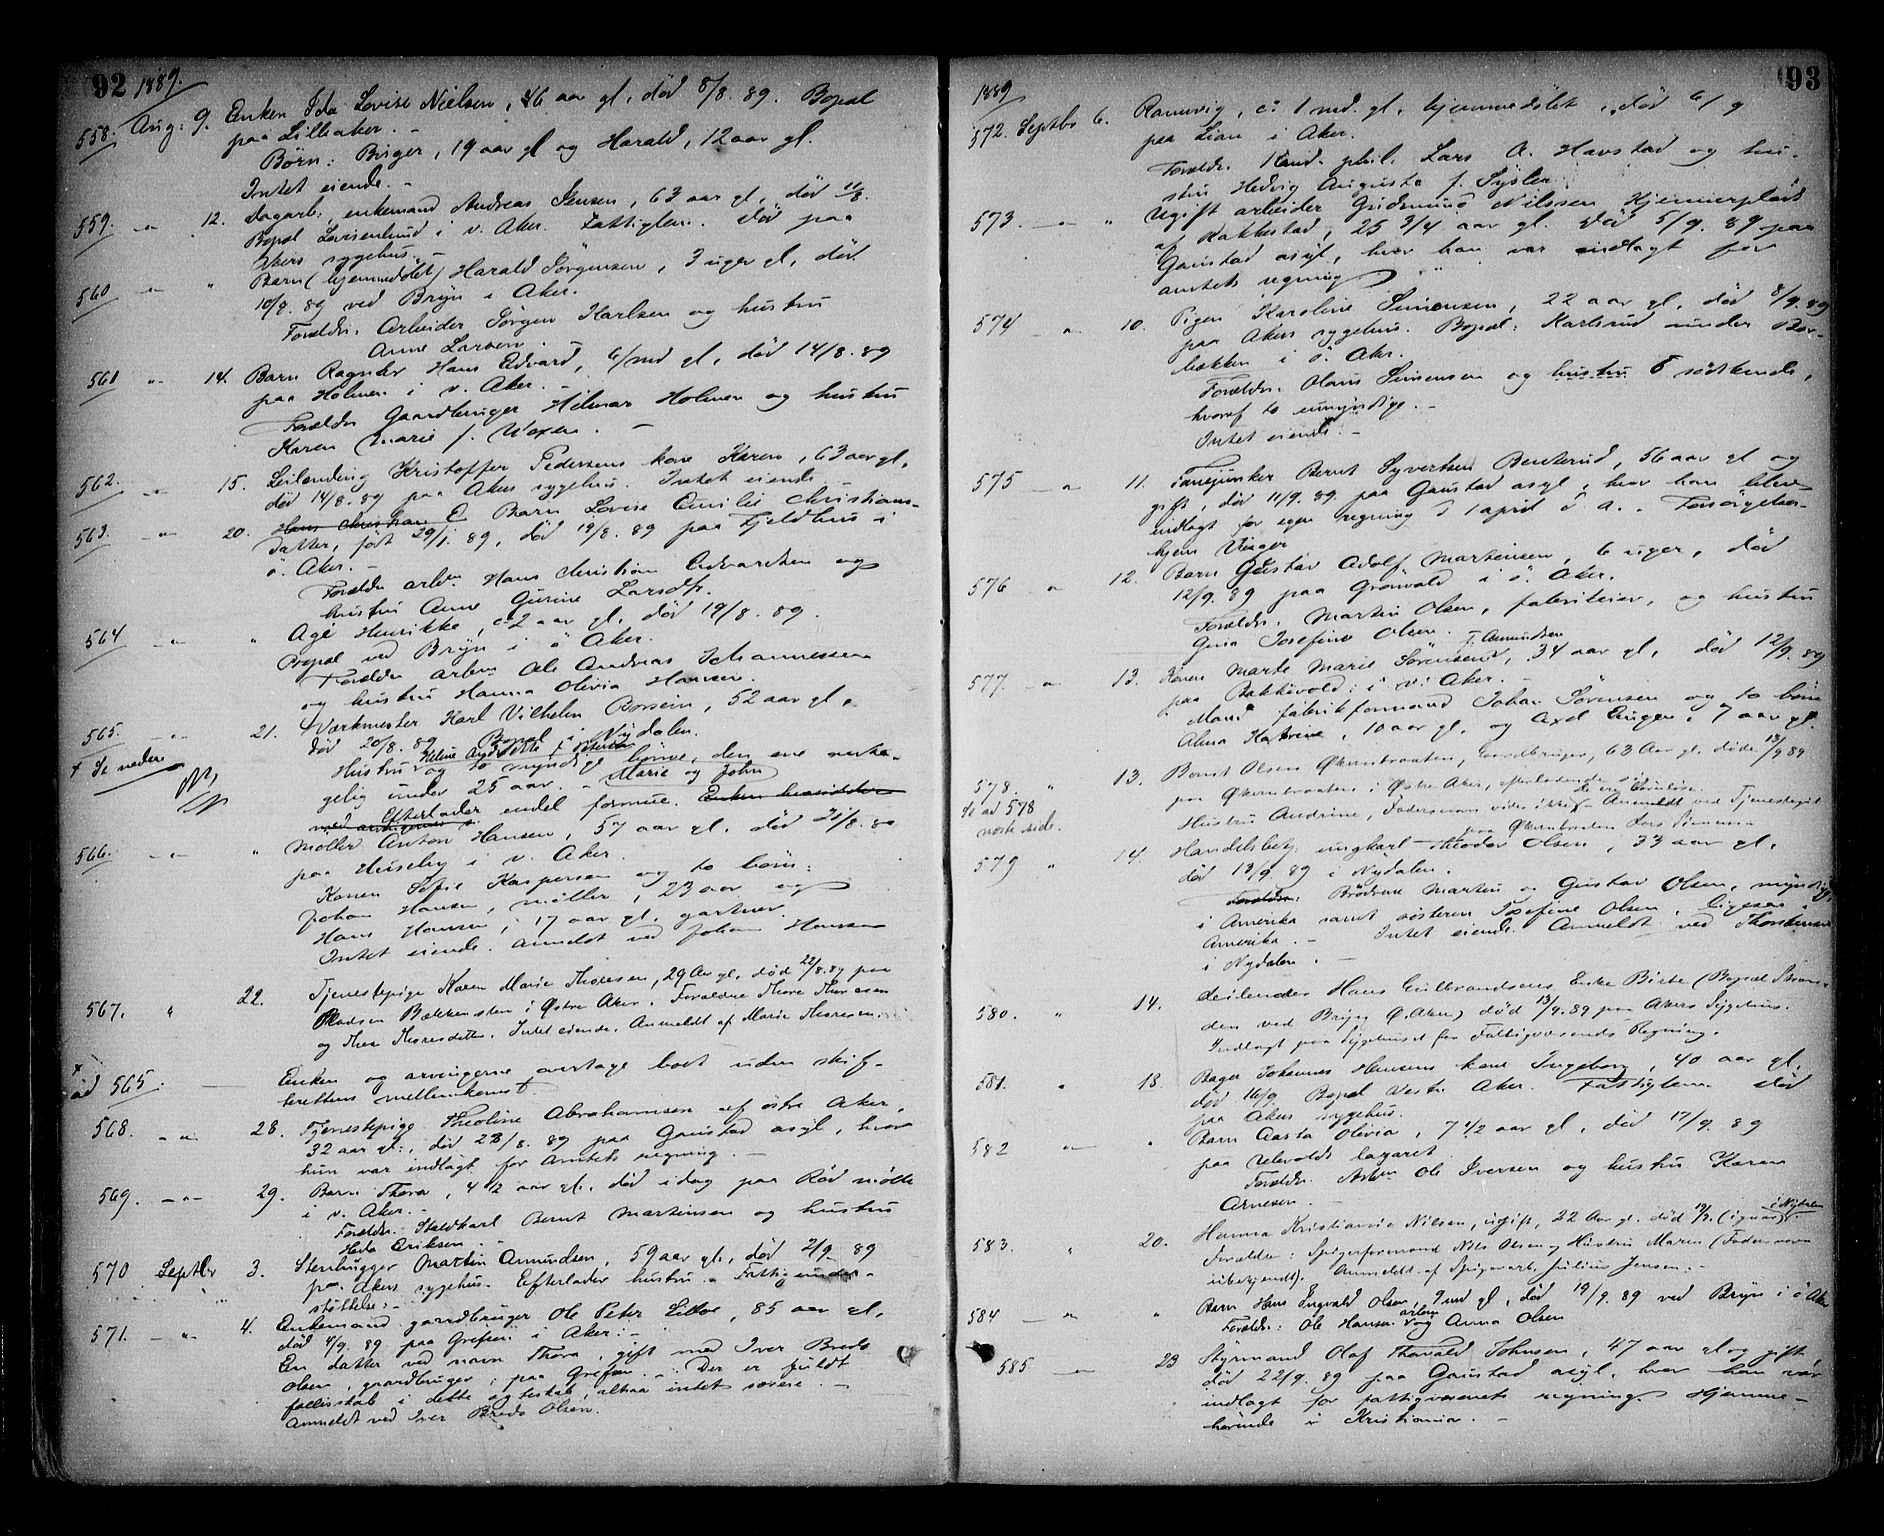 92 1889.
558. Aug: 9. Enken Ida Lovise Nielsen, 46 aar gl, død 8/8. 89. Bopæl
paa Lilleaker. –
Børn: Birger, 19 aar gl og Harald, 12 aar gl.
Intet eiende. –
559. 12. Dagarb., enkemand Andreas Jensen, 63 aar gl, død 11/8.
Bopæl Lovisenlund i v. Aker. Fattiglem. Død paa
Akers sygehus. –
560 " Barn (hjemmedøbt) Harald Jørgensen, 3 uger gl, død
10/8. 89 ved Bryn i Aker.
Forældr. Arbeider Jørgen Karlsen og hustru
Anne Larsen.
561 14. Barn Ragnar Hans Edvard, 6/ md gl, død 14/8. 89
paa Holmen i v. Aker. –
Forældr Gaardbruger Hilmar Holmen og hustru
Karen Marie f. –
562. 15. Leilending Kristoffer Pedersens kone Karen, 63 aar gl,
død 14/8. 89 paa Akers sygehus. Intet eiende.
563. 20. Barn Lovise Emilie Christians-
datter, født 29/1. 89, død 19/8. 89 paa Fjeldhus i
ø. Aker. –
Forældre arbdr Hans Christian Edvardsen og
hustru Anne Gurine Larsdtr.
564 " Age Henrikke, c 2 aar gl, død 19/8. 89.
Bopæl ved Bryn i ø Aker.
Forældre arbdr Ole Andreas Johannessen
og hustru Hanna Olivia Hansen.
565. 21. Værkmester Karl Vilhelm Borsein, 52 aar gl,
død 20/8. 89 Bopæl i Nydalen.
+ Se neden Hustru og to myndige børn, den ene
gelig under 25 aar. – Marie og John
Efterlader endel formue. Enken
566. " Møller Anton Hansen, 57 aar gl, død 21/8. 89
paa Huseby i v. Aker.
Konen Sofie Kaspersen og to børn:
Johan Hansen, møller, 23 aar og
Hans Hansen, 17 aar gl, gartner.
Intet eiende. Anmeldt ved Johan Hansen
567. " 22. Tjenestepige Karen Marie Thoresen, 29 Aar gl, død 22/8. 89 paa
Pladsen Bækkensten i Østre Aker. Forældre Thore Thoresen
og Thea Thoresdatter. Intet eiende. Anmeldt af Marie Thoresen.
+ ad 565: Enken og arvingerne overtage boet uden skif-
terettens mellemkomst.
568. 28. Tjenestepige Theoline Abrahamsen af østre Aker,
32 aar gl, død 28/8. 89 paa Gaustad asyl, hvor
hun var indlagt for Amtets regning. –
569. 29. Barn Thora, 4 1/2 aar gl., død idag paa Rød mølle
i v. Aker. –
Forældr. Staldkarl Bernt Martinsen og hustru
Eriksen. –
570 Septbr 3. Stenhugger Martin Amundsen, 59 aar gl, død 2/9. 89
paa Akers sygehus. Efterlader hustru. Fattigunder-
støttelse. –
571. 4. Enkemand gaardbruger Ole Peter Lilloe, 85 aar gl,
død 4/9. 89 paa Grefsen i Aker. –
En datter ved navn Thora, gift med Iver Bredo
Olsen, gaardbruger, paa Grefsen. – Der er fuldt
fællesskab i dette ægteskab, altsaa intet særeie. –
Anmeldt ved Iver Bredo Olsen.
1889 93
572. Septbr 6. Ramvig, c: 1 md. gl, hjemmedøbt, død 6/9
paa Lian i Aker.
Forældr. Kand. phil. Lars A. Havstad og hu-
stru Hedvig Augusta f. Sysler.
573. " Ugift arbeider Gudmund Nilssen Hjemmerplads
af Nakkestad, 25 3/4 aar gl. død 5/9. 89 paa
Gaustad asyl, hvor han var indlagt for
amtets regning
574 10. Pigen Karoline Simensen, 22 aar gl, død 8/9. 89
paa Akers sygehus. Bopæl: Karlsrud under
bækken i ø. Aker.
Forældr. Olaus Simensen og hustru 5 sødskende,
hvoraf to umyndige. –
Intet eiende. –
575 11. Fanejunker Bernt Syvertsen Benterud, 56 aar gl og
gift, død 11/9. 89. paa Gaustad asyl, hvor han blev
indlagt for egen regning d 1 april d. a. – Forsørgelses-
hjem Vinger
576 12. Barn Gustav Adolf Martinsen, 6 uger, død
12/9. 89 paa Grønvold i ø. Aker.
Forældr. Martin Olsen, fabrikeier, og hustru
Gina Josefine Olsen.
577. 13. Konen Marte Marie Sørensen f. Amundsen, 34 aar gl, død 12/9. 89
paa Bakkevold i v. Aker. –
Mand fabrikformand Johan Sørensen og to børn
Alma Katrine, 10 aar gl, og Axel Eugen, 7 aar gl.
578. " 13. Bernt Olsen Økernbraaten, Gaardbruger, 63 Aar gl, døde 13/9 89
Se ad 578 næste side. paa Økernbraaten i Østre Aker, efterladende sig
Hustru Andrine, Fadersnavn vides ikke. De ere barnløse. Anmeldt ved Tjenestepige
paa Økernbraaten
579 " 14. Handelsbetj. ungkarl Theodor Olsen, 33 aar gl,
død 13/9. 89 i Nydalen.
Forældre: Brødrene Martin og Gustav Olsen, myndige,
i Amerika samt søsteren Josefine Olsen, ligesaa i
Amerika. – Intet eiende. Anmeldt ved
i Nydalen. –
580. " 14. Leilendes Hans Gulbrandsens Enke Birte (Bopæl
den ved Bryn Ø. Aker) død 13/9. 89 paa Akers Sygehus.
Indlagt paa Sygehuset for Fattigvæsenets Regning.
581. " 18. Bager Johannes Hansens kone Ingeborg, 40 aar gl,
død 16/9. Bopæl Vestr Aker. Fattiglem. død
paa Akers sygehus.
582 " Barn Aasta Olivia, 7 1/2 aar gl, død 17/9. 89
paa Ullevolds lazaret
Forældr. Arbdr Ole Iversen og hustru Karen
Arnesen. –
583. " 20. Hanna Kristiania Nilsen, ugift, 22 Aar gl. død 19/9. (igaar) i Nydalen
Forældre: Spigerformand Nils Olsen og Hustru Maren (Fadersnavn
ubekjendt). Anmeldt af Spigerarb. Julius Jensen. –
584 " Barn Hans Ingvald Olsen, 9 md gl, død 19/9. 89 ved Bryn i ø Aker
Forældr: Ole Hansen arbdr og Anna Olsen
585 23 Styrmand Olaf Thorvald Johnsen, 47 aar gl og gift
død 22/9. 89 paa Gaustad asyl, hvor han var
indlagt for fattigvæsenets regning. Hjemme-
hørende i Kristiania. –